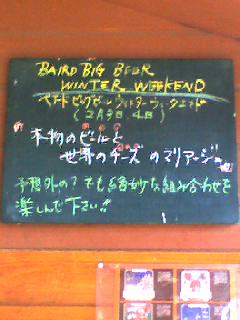 BAIRD BIG BEER
WINTER WEEKEND
ベアードビッグビールウィンターウィークエンド
(2月3日、4日)
本物のビールと
世界のチーズのマリアージュ
予想外の?でも絶妙な組み合わせを
楽しんで下さい!!